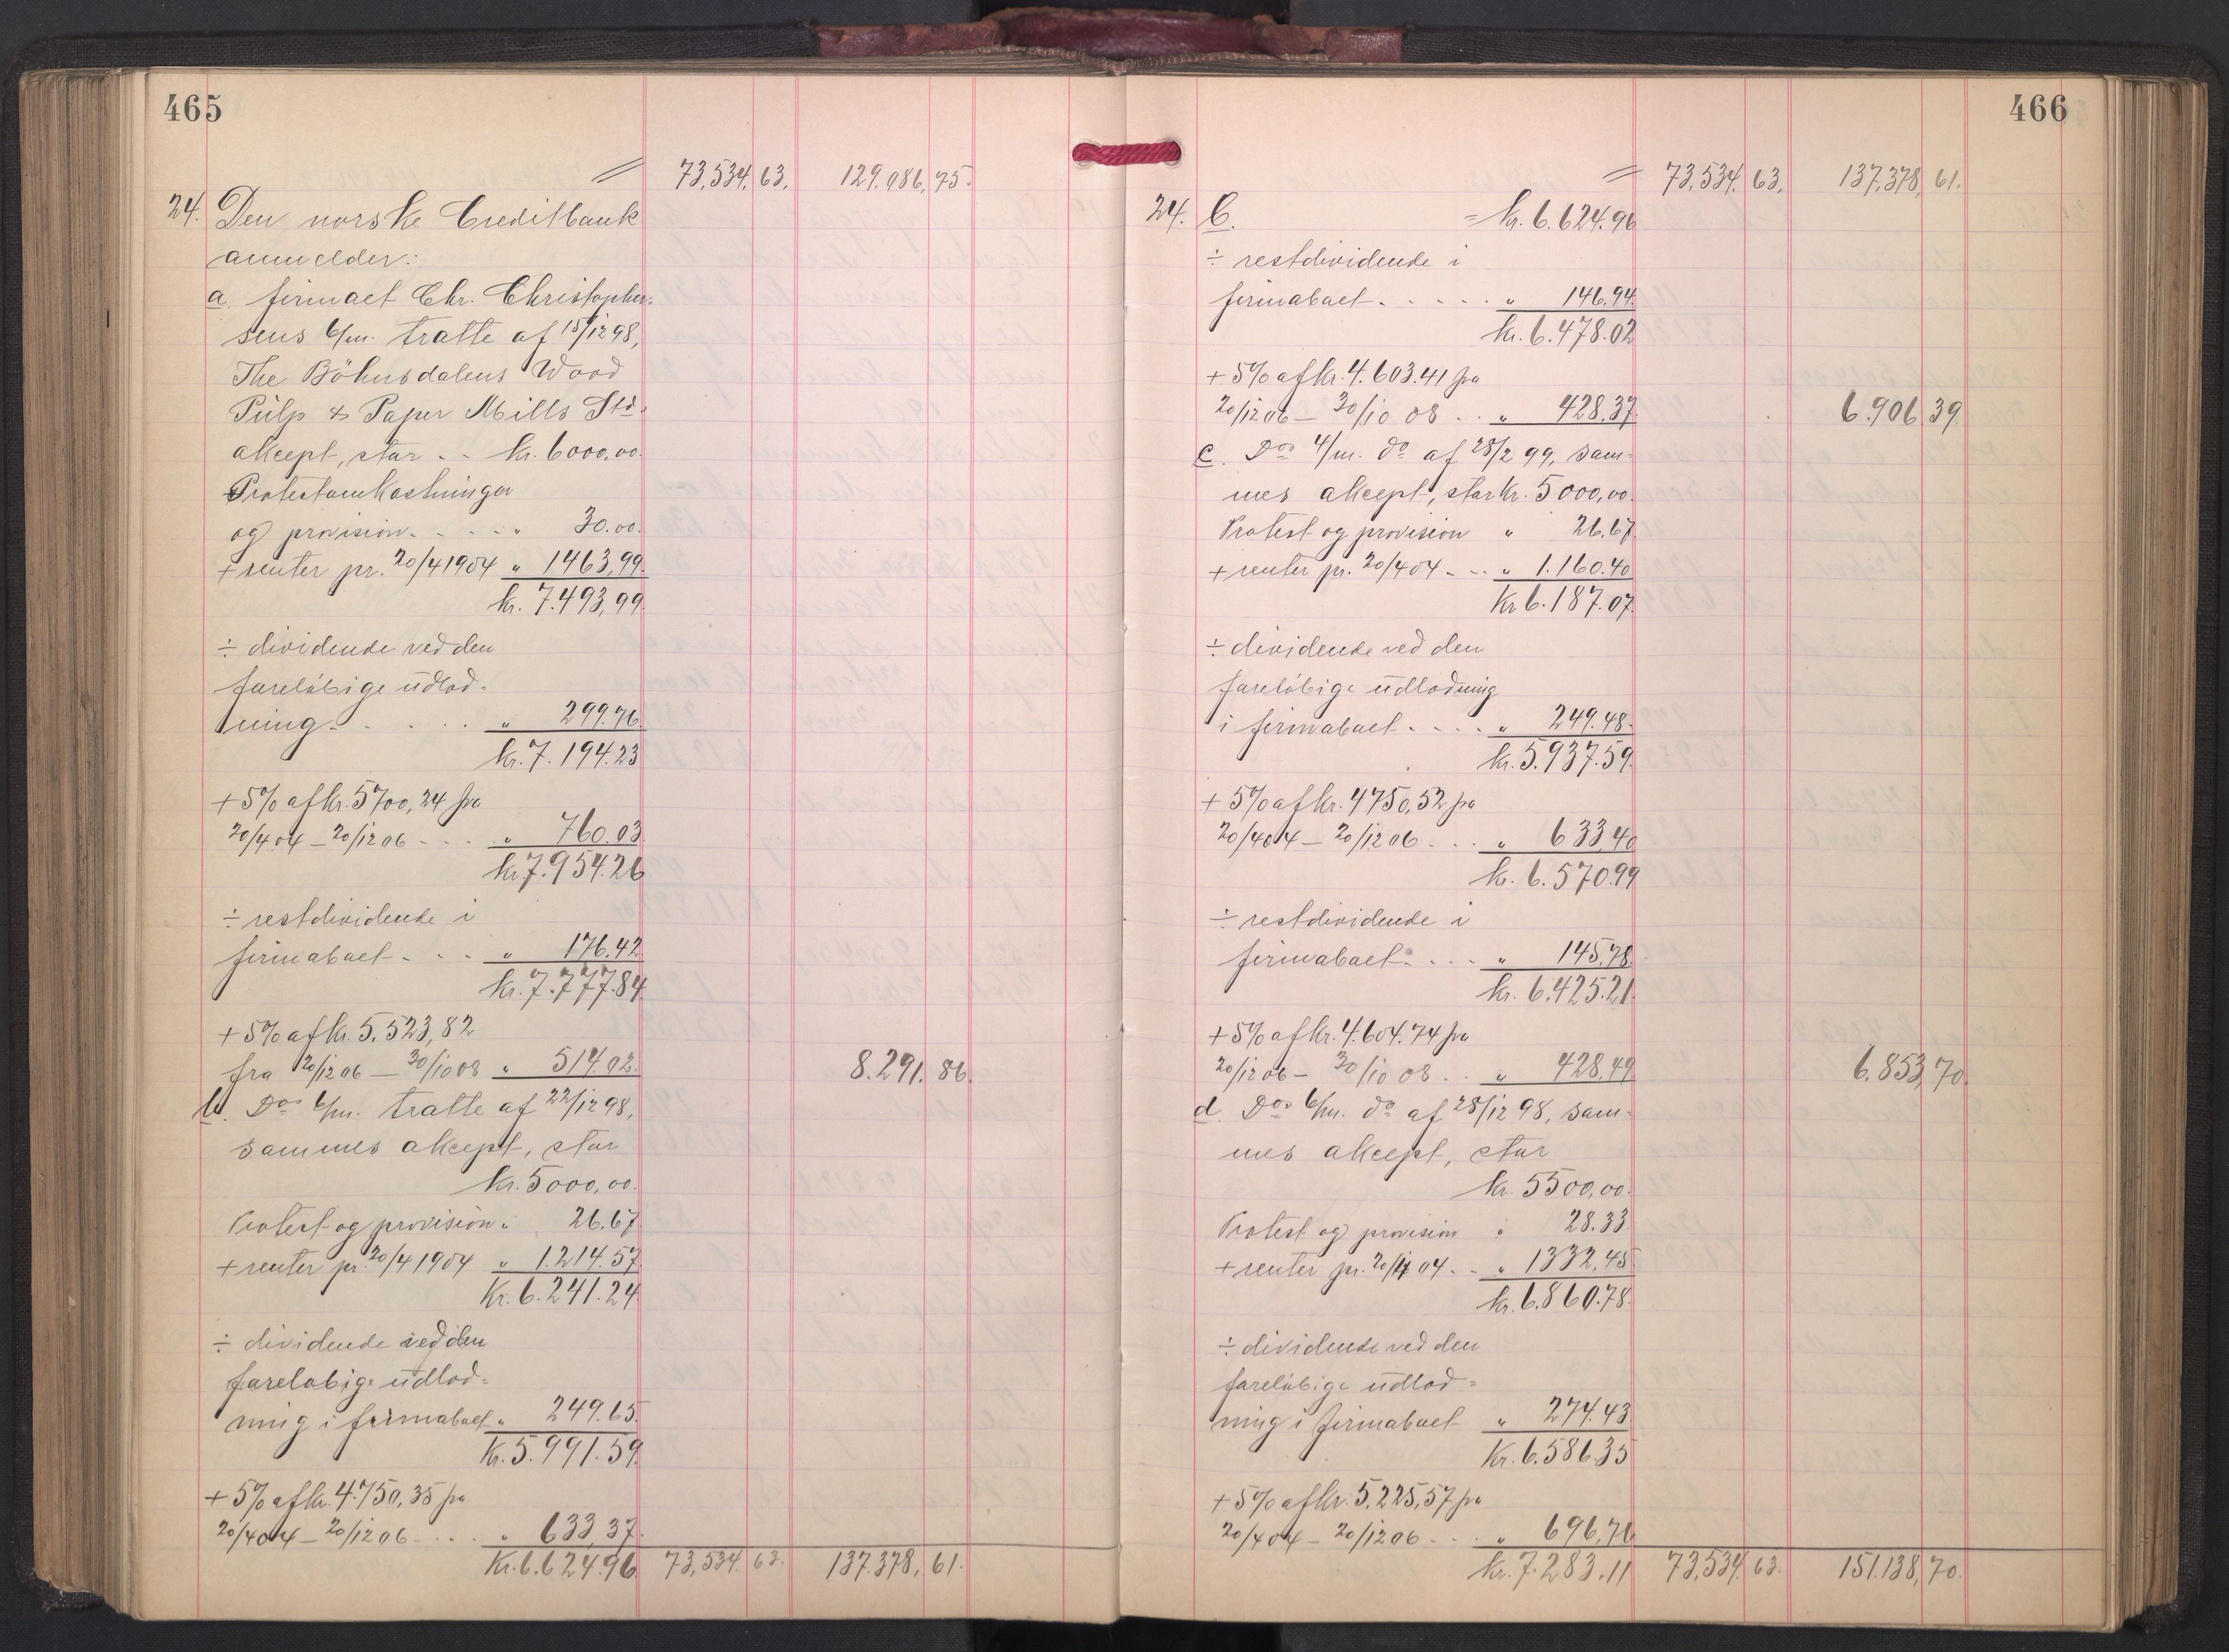 465
= 73,534. 63. 129.086, 75.
24. Den norske Creditbank
anmelder:
a. firmaet Chr. Christopher-
sens 6/m. tratte af 15/12 98,
The Böhnsdalens Wood
Pulp & Paper Mills Ltd.
akcept, stor . . kr. 6000,00.
Protestomkostninger
og provision . . . . " 30.00.
+ renter pr. 20/4 1904 " 1463,99.
kr. 7.493,99.
÷ dividende ved den
foreløbige udlod-
ning . . . . . " 299.76.
kr. 7.194.23
+ 5% af kr. 5700,24 fra
20/4 04 – 20/12 06 . . . . " 760.03
kr. 7.954.26
÷ restdividende i
firmaboet . . . " 176.42
kr. 7.777.84
+ 5% af kr. 5.523,82
fra 20/12 06 – 30/10 08 " 514.02. 8.291. 86.
b. Dos 6/m. tratte af 22/12 98,
sammes akcept, stor
kr. 5000,00.
Protest og provision " 26.67
+ renter pr. 20/4 1904 " 1.214.57
Kr. 6.241.24
÷ dividende ved den
foreløbige udlod-
ning i firmaboet " 249.65.
Kr. 5.991.59.
+ 5% af kr. 4.750,35 fra
20/4 04 – 20/12 06 . . . . " 633,37.
Kr. 6.624.96 73,534. 63. 137.378, 61.
466
= 73,534. 63. 137,378, 61.
24. b. = kr. 6.624.96
÷ restdividende i
firmaboet . . . . . " 146.94.
kr. 6.478.02
+ 5% af kr. 4.603.41 fra
20/12 06 – 30/10 08 . . " 428.37 6.906 39.
c. Dos 4/m. do af 28/2 99, sam-
mes akcept, stor kr. 5000,00.
Protest og provision " 26.67.
+ renter pr. 20/4 04 . . . " 1.160.40
Kr 6.187.07.
÷ dividende ved den
foreløbige udlodning
i firmaboet . . . . " 249.48.
kr. 5.937.59.
+ 5% af kr. 4750,52 fra
20/4 04 – 20/12 06 . . . " 633.40
kr. 6.570.99
÷ restdividende i
firmaboet . . . . " 145.78.
kr. 6.425.21.
+ 5% af kr. 4.604.74 fra
20/12 06 – 30/10 08 . . " 428,49 6.853, 70.
d. Dos 6/m. do af 28/12 98, sam-
mes akcept, stor
kr. 5500,00.
Protest og provision " 28.33.
+ renter pr. 20/4 04 . . " 1332,45
kr. 6.860.78.
÷ dividende ved den
foreløbige udlod-
ning i firmaboet " 274.43
Kr. 6.586.35
+ 5% af kr. 5.225,57 fra
20/4 04 – 20/12 06 . . . " 696,76
kr. 7.283.11 73,534. 63. 151.138, 70.